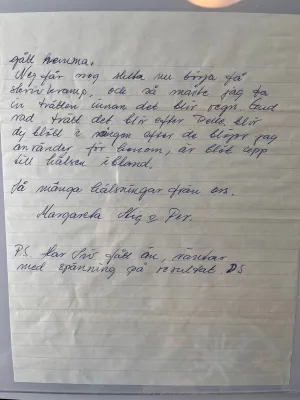 gått hemma.
Nej får nog sluta nu börja få
skrivkramp, och så måste jag ta
in tvätten innan det blir regn. Gud
vad tvätt det blir efter Pelle blir
dy blött i sängen efter de blöjor jag
använder för honom, är blöt upp
till halsen ibland.
Så många hälsningar från oss.
Margareta Stig o Per.
P.S. Har Siv fått än, väntar
med spänning på resultat. DS